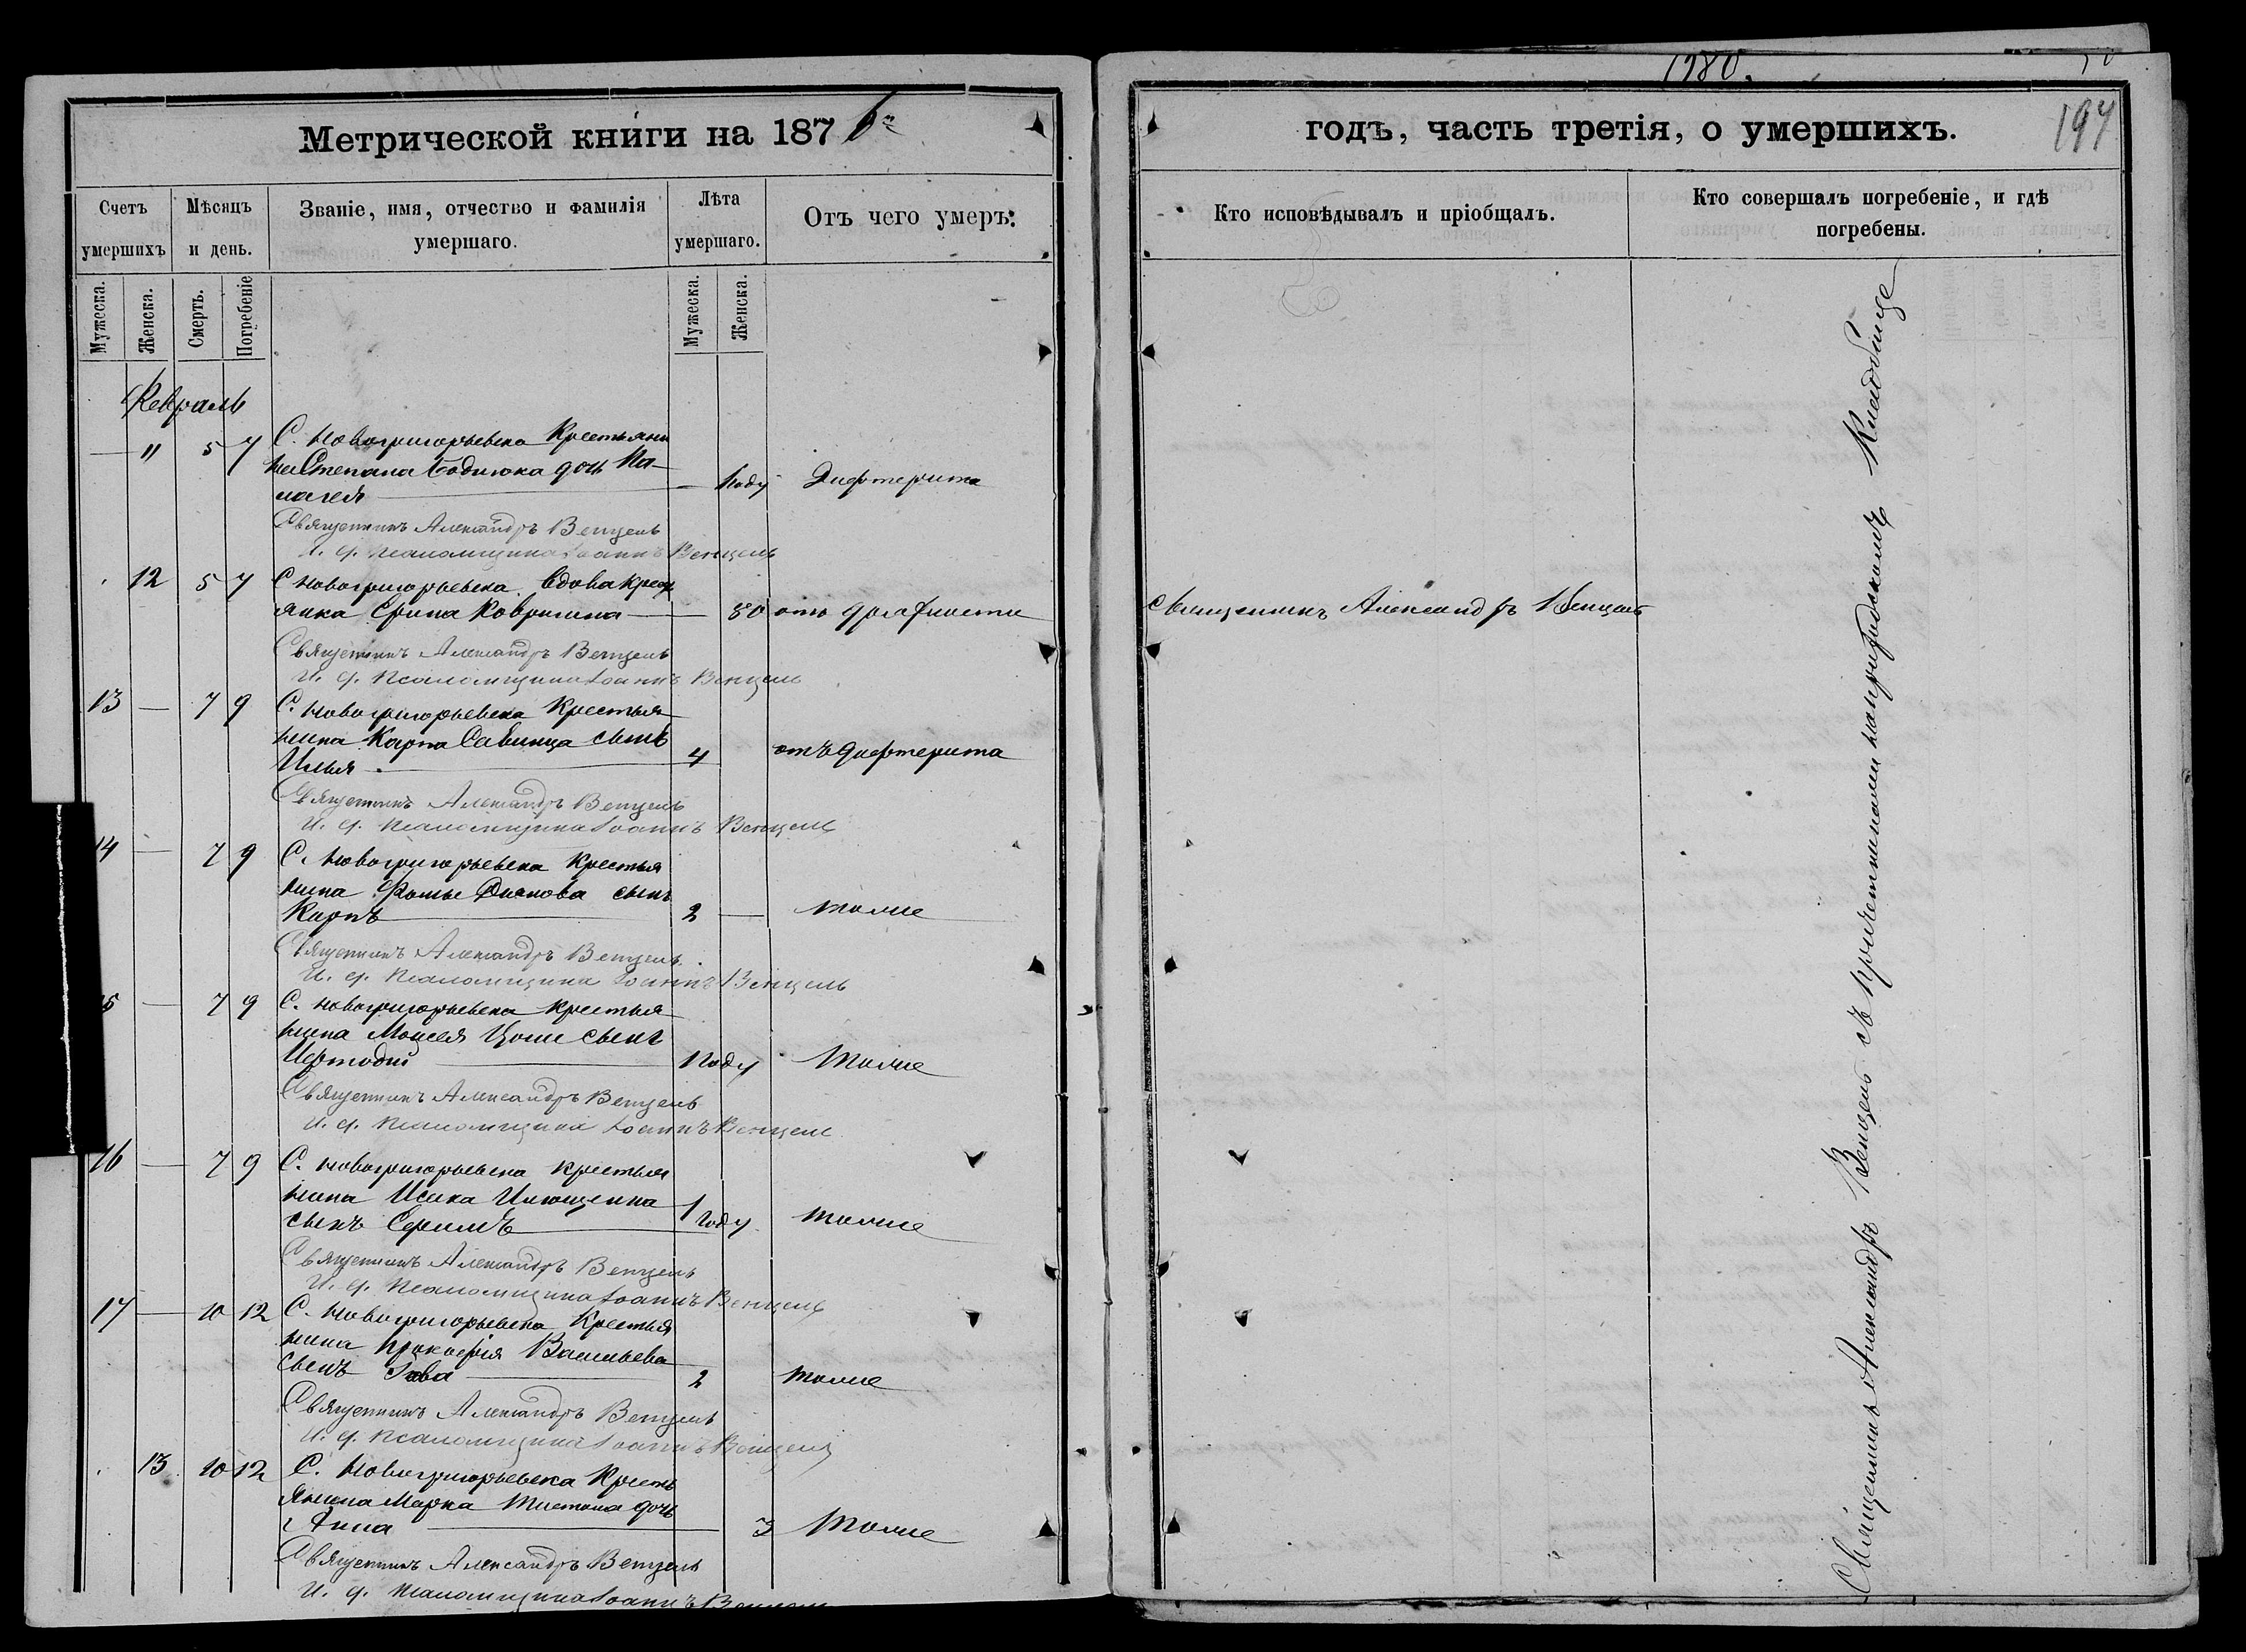 Метрической книги на 1876го
Счетъ умершихъ
Мѣсяцъ и день.
Званіе, имя, отчество и фамилія умершаго.
Лѣта умершаго.
Отъ чего умеръ:
Мужеска.
Женска.
Смерть.
Погребеніе
Мужеска.
Женска.
Февраль
— 11 5 7 С. Новогригорьевка Крестьяни
на Степана дочь Па-
лагея — 1 году Дифтерита
Священникъ Александръ Венцель
И. д. Псаломщика Іоаннъ Венцель
12 5 7 С Новогригорьевка вдова крест
янка Ирина — 80 отъ дряхлости
Священникъ Александръ Венцель
И. д. Псаломщика Іоаннъ Венцель
13 — 7 9 С. Новогригорьевка Крестья
нина Карпа Савинца сынъ
Илья — 4 отъ дифтерита
Священникъ Александръ Венцель
И. д. Псаломщика Іоаннъ Венцель
14 — 7 9 С. Новогригорьевка Крестья
нина Фомы сынъ
Карпъ — 2 — тоже
Священникъ Александръ Венцель.
И. д. Псаломщика Іоаннъ Венцель
15 — 7 9 С. Новогригорьевка крестья
нина Моисея сынъ
1 году тоже
Священникъ Александръ Венцель
И. д. Псаломщика Іоаннъ Венцель
16 — 7 9 С. Новогригорьевка крестья
нина Исака Илющенка
сынъ — 1 году тоже
Священникъ Александръ Венцель
И. д. Псаломщика Іоаннъ Венцель
17 — 10 12 С. Новогригорьевка Крестья
нина Прокофія Васильева
сынъ — 2 тоже
Священникъ Александръ Венцель
И. д. Псаломщика Іоаннъ Венцель
13 10 12 С. Новогригорьевка Кресть
янина Марка дочь
Анна — 3 тоже
Священникъ Александръ Венцель
И. д. Псаломщика Іоаннъ Венцель
1980.
197
годъ, часть третія, о умершихъ.
Кто исповѣдывалъ и пріобщалъ.
Кто совершалъ погребеніе, и гдѣ погребены.
Священникъ Александръ Венцель
Священникъ Александръ Венцель съ причетниками на приходскомъ Кладбище